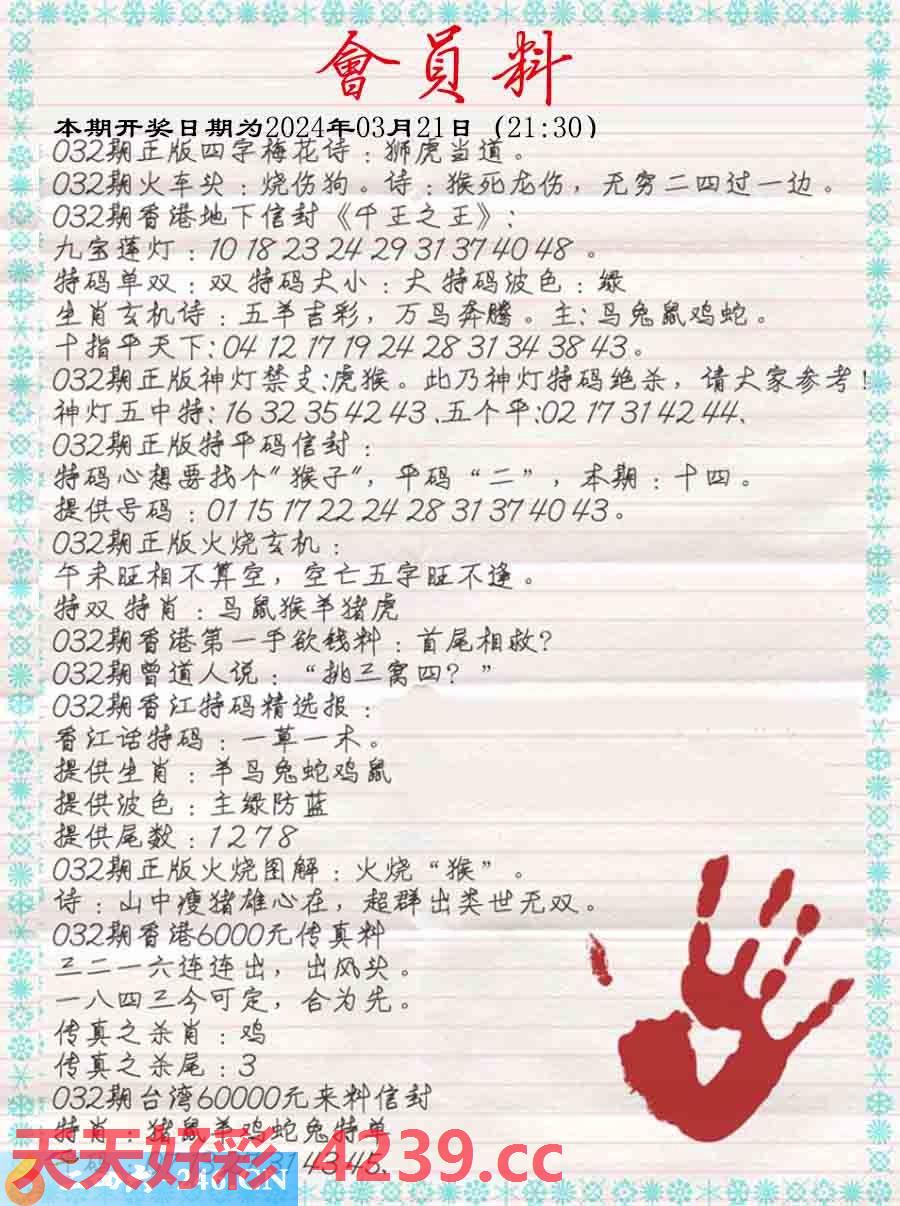 會員料
本期开奖日期为2024年03月21日（21:30）
032期正版四字梅花诗：狮虎当道。
032期火车头：烧伤狗。诗：猴死龙伤，无穷二四过一边。
032期香港地下信封《千王之王》：
九宝莲灯：10 18 23 24 29 31 37 40 48 。
特码单双：双 特码大小：大 特码波色：绿
生肖玄机诗：五羊吉彩，万马奔腾。主：马兔鼠鸡蛇。
十指平天下：04 12 17 19 24 28 31 34 38 43。
032期正版神灯禁支:虎猴。此乃神灯特码绝杀，请大家参考！
神灯五中特：16 32 35 42 43 .五个平:02 17 31 42 44.
032期正版特平码信封：
特码心想要找个"猴子"，平码“二”，本期：十四。
提供号码：01 15 17 22 24 28 31 37 40 43。
032期正版火烧玄机：
午未旺相不算空，空亡五字旺不逢。
特双 特肖：马鼠猴羊猪虎
032期香港第一手欲钱料：首尾相救？
032期曾道人说：“挑三窝四？”
032期香江特码精选报：
香江话特码：一草一木。
提供生肖：羊马兔蛇鸡鼠
提供波色：主绿防蓝
提供尾数：1 2 7 8
032期正版火烧图解：火烧“猴”。
诗：山中瘦猪雄心在，超群出类世无双。
032期香港6000元传真料
三二一六连连出，出风头。
一八四三今可定，合为先。
传真之杀肖：鸡
传真之杀尾：3
032期台湾60000元来料信封
特肖：猪鼠羊鸡蛇兔特单
43 45.
天天好彩 4239.cc
246.CN